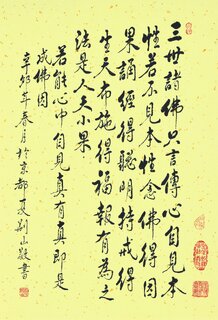 三世諸佛只言傳心自見本
性若不見本性念佛得因
果誦經得聰明持戒得
生天布施得福報有為之
法是人天小果
若能心中自見真有真即是
成佛因
辛卯年春月於京都夏荆山敬書